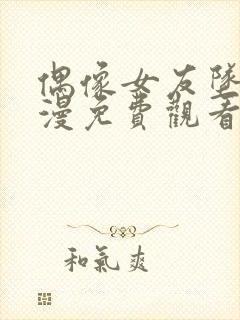 偶像女友墜
漫免費觀看
和氣爽